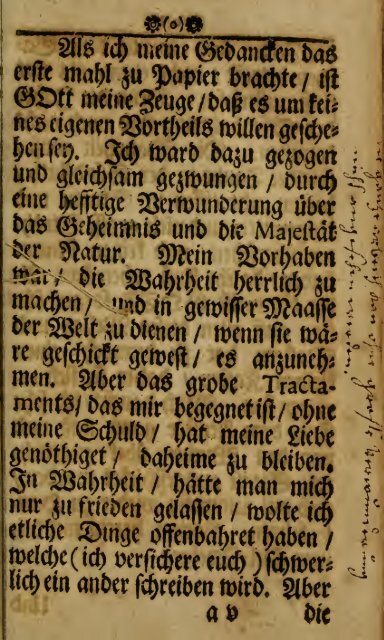 (o)
Als ich meine Gedancken das
erste mahl zu Papier brachte / ist
GOtt meine Zeuge / daß es um kei-
nes eigenen Vortheils willen gesche-
hen sey. Ich ward dazu gezogen
und gleichsam gezwungen / durch
eine hefftige Verwunderung über
das Geheimnis und die Majestät
der Natur. Mein Vorhaben
war / die Wahrheit herrlich zu
machen / und in gewisser Maasse
der Welt zu dienen / wenn sie wä-
re geschickt gewest / es anzuneh-
men. Aber das grobe Tracta-
ments / das mir begegnet ist / ohne
meine Schuld / hat meine Liebe
genöthiget / daheime zu bleiben.
In Wahrheit / hätte man mich
nur zu frieden gelassen / wolte ich
etliche Dinge offenbahret haben /
welche ( ich versichere euch ) schwer-
lich ein ander schreiben wird. Aber
a v die